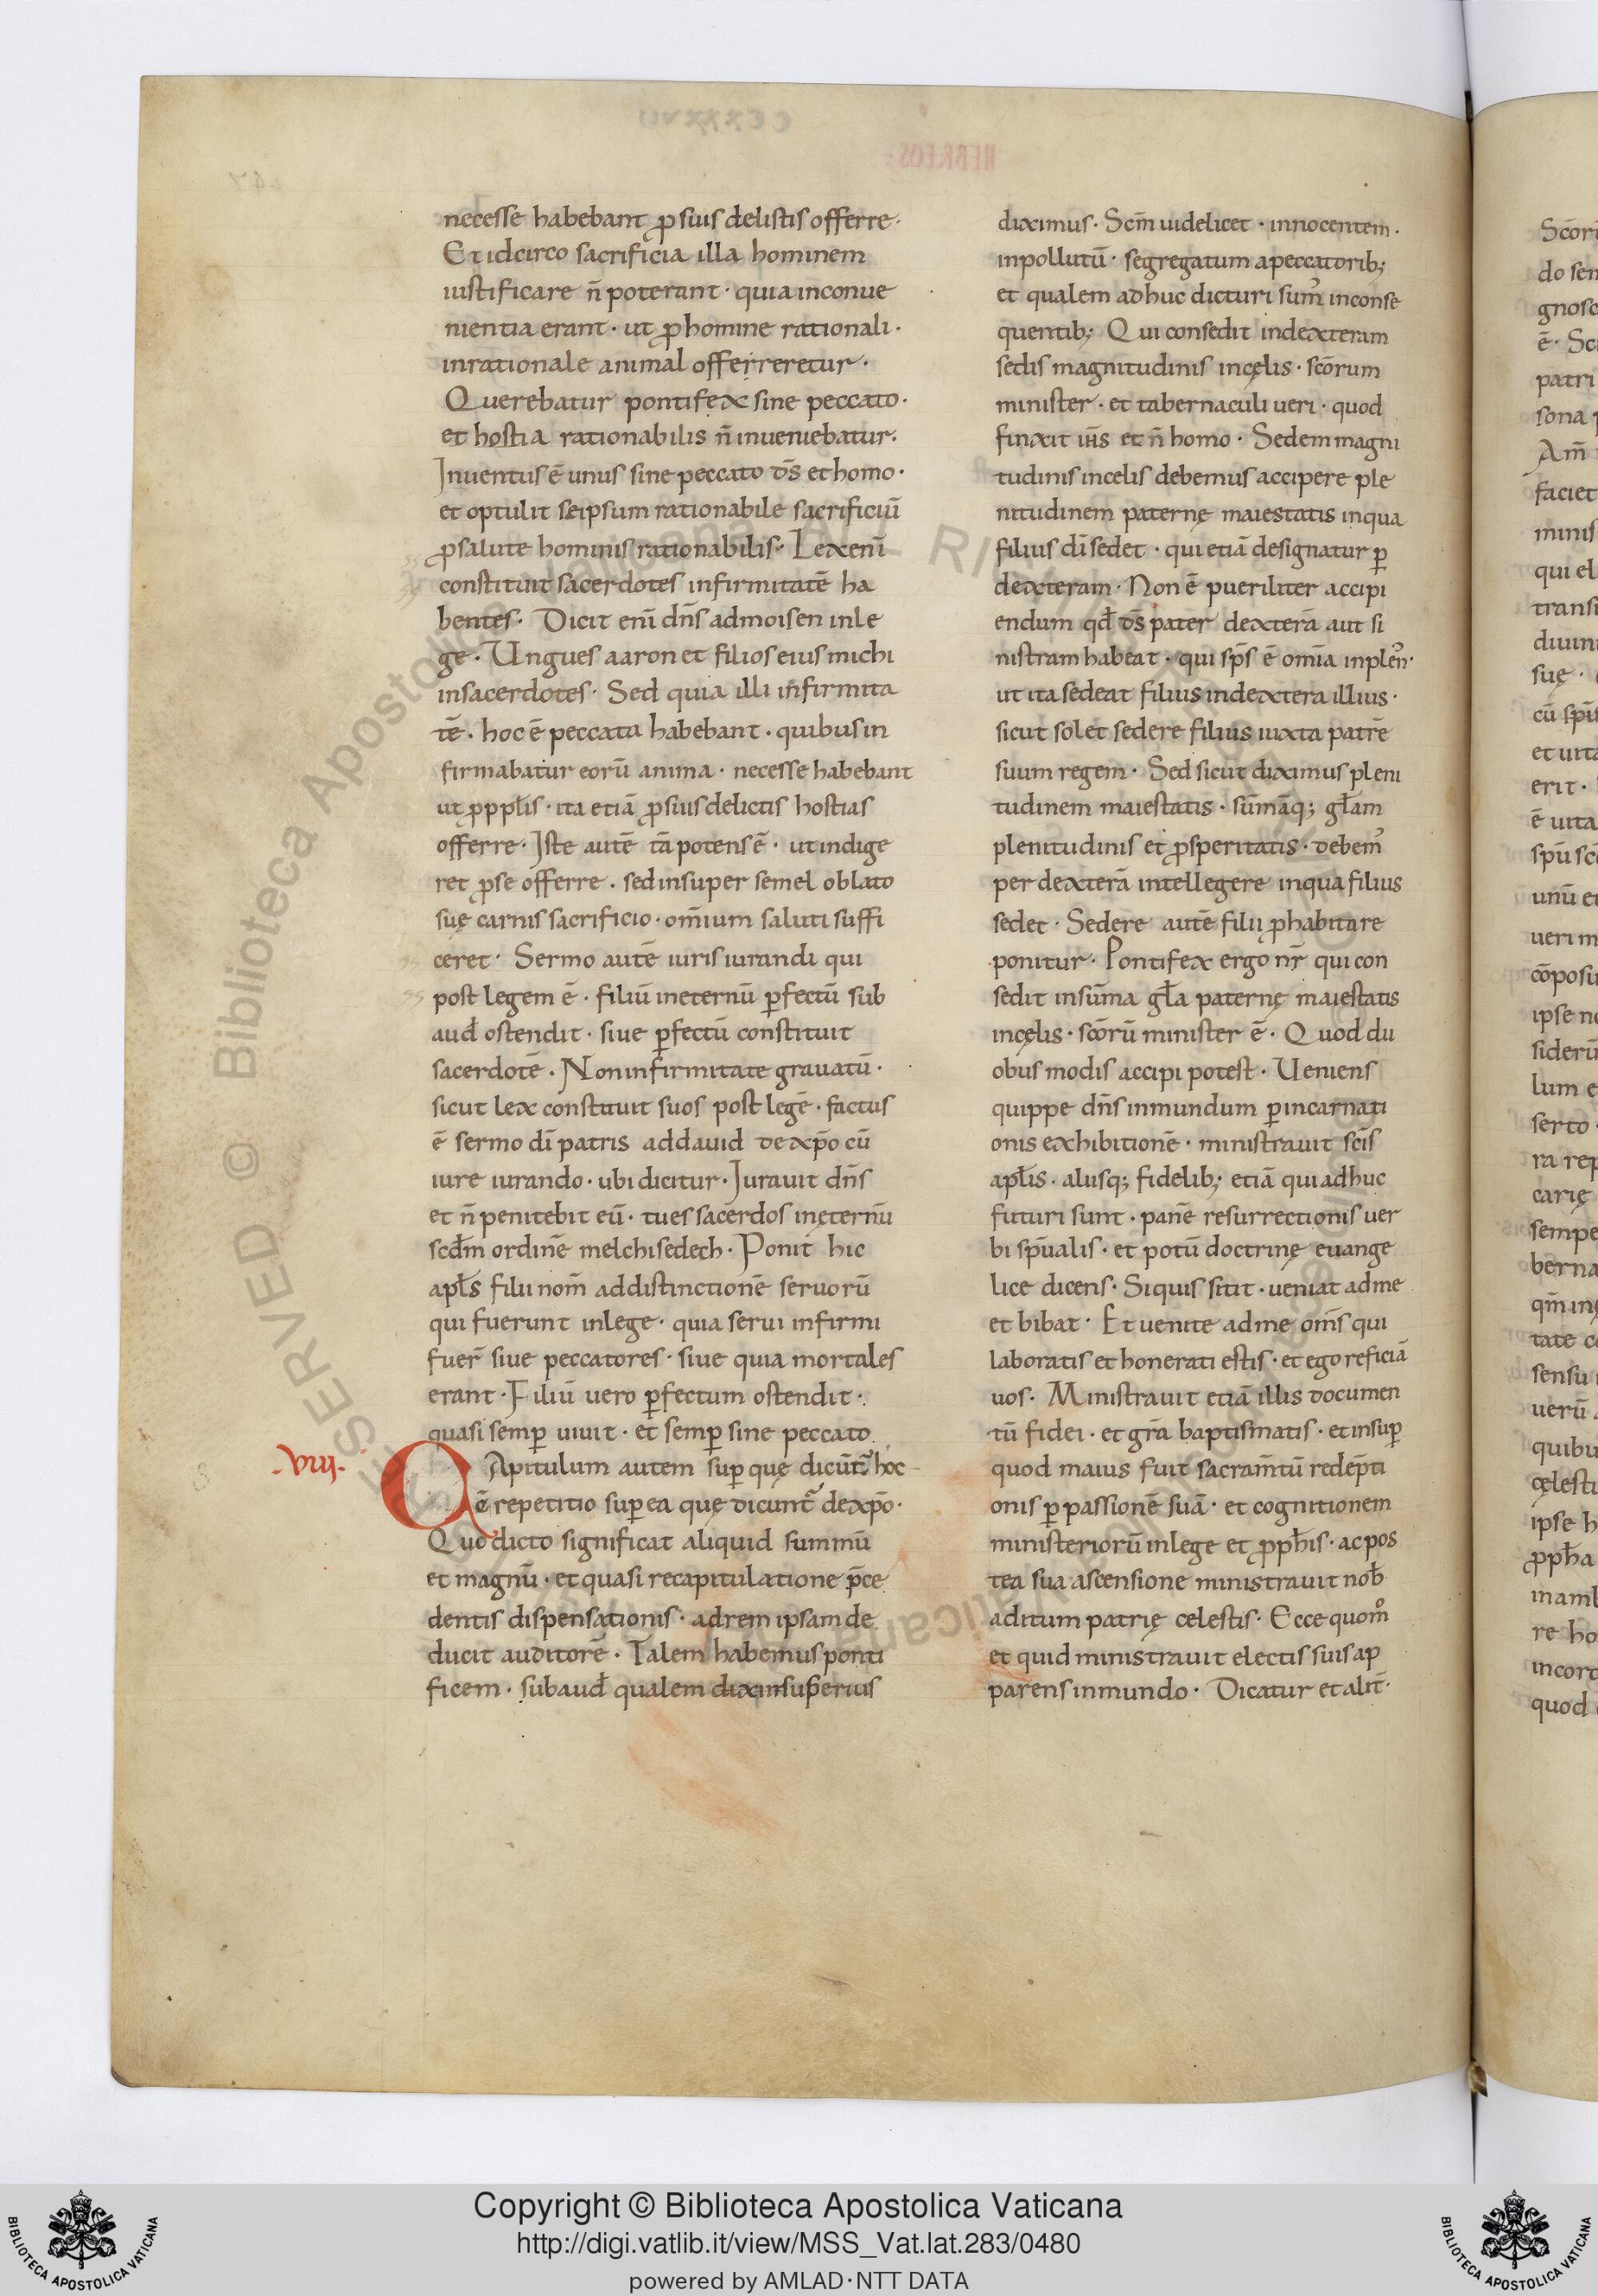 necesse habebant ꝓ suis delictis offerre·
Et idcirco sacrificia illa hominem
iustificare n̄ poterant· quia inconue
nientia erant· ut ꝓ homine rationali·
inrationale animal offerreretur·
Querebatur pontifex sine peccato·
et hostia rationabilis n̄ inueniebatur·
Inuentus ē unus sine peccato d̄s et homo·
et optulit seipsum rationabile sacrificiū
ꝓ salute hominis rationabilis· Lex enī
constituit sacerdotes infirmitatē ha
bentes· Dicit enī dn̄s ad moisen in le
ge· Ungues aaron et filios eius michi
in sacerdotes· Sed quia illi infirmita
tē· hoc ē peccata habebant· quibus in
firmabatur eorū anima· necesse habebant
ut ꝓ ppl̄is· ita etiā ꝓ suis delictis hostias
offerre· Iste autē tā potens ē· ut indige
ret ꝓ se offerre· sed insuper semel oblato
suę carnis sacrificio· om̄ium saluti suffi
ceret· Sermo autē iuris iurandi qui
post legem ē· filiū in eternū ꝑfectū sub
aud̄ ostendit· siue ꝑfectū constituit
sacerdotē· Non infirmitate grauatū·
sicut lex constituit suos post legē· factus
ē sermo dī patris ad dauid de xp̄o cū
iure iurando· ubi dicitur· Iurauit dn̄s
et n̄ penitebit eū· tu es sacerdos in ęternū
scd̄m ordinē melchisedech· Ponit hic
apl̄s filii nom̄ ad distinctionē seruorū
qui fuerunt in lege· quia serui infirmi
fuer̄ siue peccatores· siue quia mortales
erant· Filiū uero ꝑfectum ostendit·
quasi semꝑ uiuit· et semꝑ sine peccato.
·VIII· CApitulum autem suꝑ quę dicūt᷑ hoc
ē repetitio suꝑ ea quę dicunt᷑ de xp̄o·
Quo dicto significat aliquid summū
et magnū· et quasi recapitulatione p̄ce
dentis dispensationis· ad rem ipsam de
ducit auditorē· Talem habemus ponti
ficem· subaud̄ qualem dixim superius
diximus· Scm̄ uidelicet· innocentem·
inpollutū· segregatum a peccatorib;
et qualem adhuc dicturi sum᾽ in conse
quentib; Qui consedit in dexteram
sedis magnitudinis in cęlis· scōrum
minister· et tabernaculi ueri· quod
finxit ih̄s et n̄ homo· Sedem magni
tudinis in celis debemus accipere ple
nitudinem paternę maiestatis in qua
filius dī sedet· qui etiā designatur ꝑ
dexteram· Non ē pueriliter accipi
endum qd̄ d̄s pater dexterā aut si
nistram habeat· qui sp̄s ē om̄ia inplen᾽·
ut ita sedeat filius in dextera illius·
sicut solet sedere filius iuxta patrē
suum regem· Sed sicut diximus pleni
tudinem maiestatis· sūmāq; gl̄am
plenitudinis et ꝓsperitatis· debem᾽
per dexterā intellegere in qua filius
sedet· Sedere autē filii ꝓ habitare
ponitur· Pontifex ergo nr̄ qui con
sedit in sūma gl̄a paternę maiestatis
in cęlis· scōrū minister ē· Quod du
obus modis accipi potest· Ueniens
quippe dn̄s in mundum ꝑ incarnati
onis exhibitionē· ministrauit scīs
apl̄is· aliisq; fidelib; etiā qui adhuc
futuri sunt· panē resurrectionis uer
bi sp̄ualis· et potū doctrinę euange
lice dicens· Siquis sitit· ueniat ad me
et bibat· Et uenite ad me om̄s qui
laboratis et honerati estis· et ego reficiā
uos· Ministrauit etiā illis documen
tū fidei· et gr̄a baptismatis· et insuꝑ
quod maius fuit sacram̄tū redēpti
onis ꝑ passionē suā· et cognitionem
ministeriorū in lege et ꝓph̄is· ac pos
tea sua ascensione ministrauit nob̄
aditum patrię celestis· Ecce quomͦ
et quid ministrauit electis suis ap
parens in mundo· Dicatur et alit̄·
Copyright © Biblioteca Apostolica Vaticana
http://digi.vatlib.it/view/MSS_Vat.lat.283/0480
powered by AMLAD·NTT DATA
BIBLIOTECA APOSTOLICA VATICANA
BIBLIOTECA APOSTOLICA VATICANA